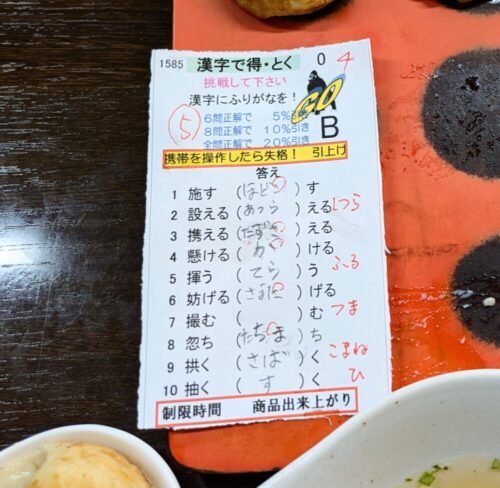 1585 漢字で得・とく 0 4
挑戦して下さい
漢字にふりがなを!
GO
5
6問正解で 5%引き
8問正解で 10%引き
全問正解で 20%引き
B
携帯を操作したら失格! 引上げ
答え
1 施す (ほどこ) す
2 設える (あつら) える しつら
3 携える (たずさ) える
4 懸ける ( か ) ける
5 揮う ( てら ) う ふる
6 妨げる (さまた) げる
7 撮む ( ) む つま
8 忽ち (たちま) ち
9 拱く (さば) く こまね
10 抽く ( す ) く ひ
制限時間 商品出来上がり